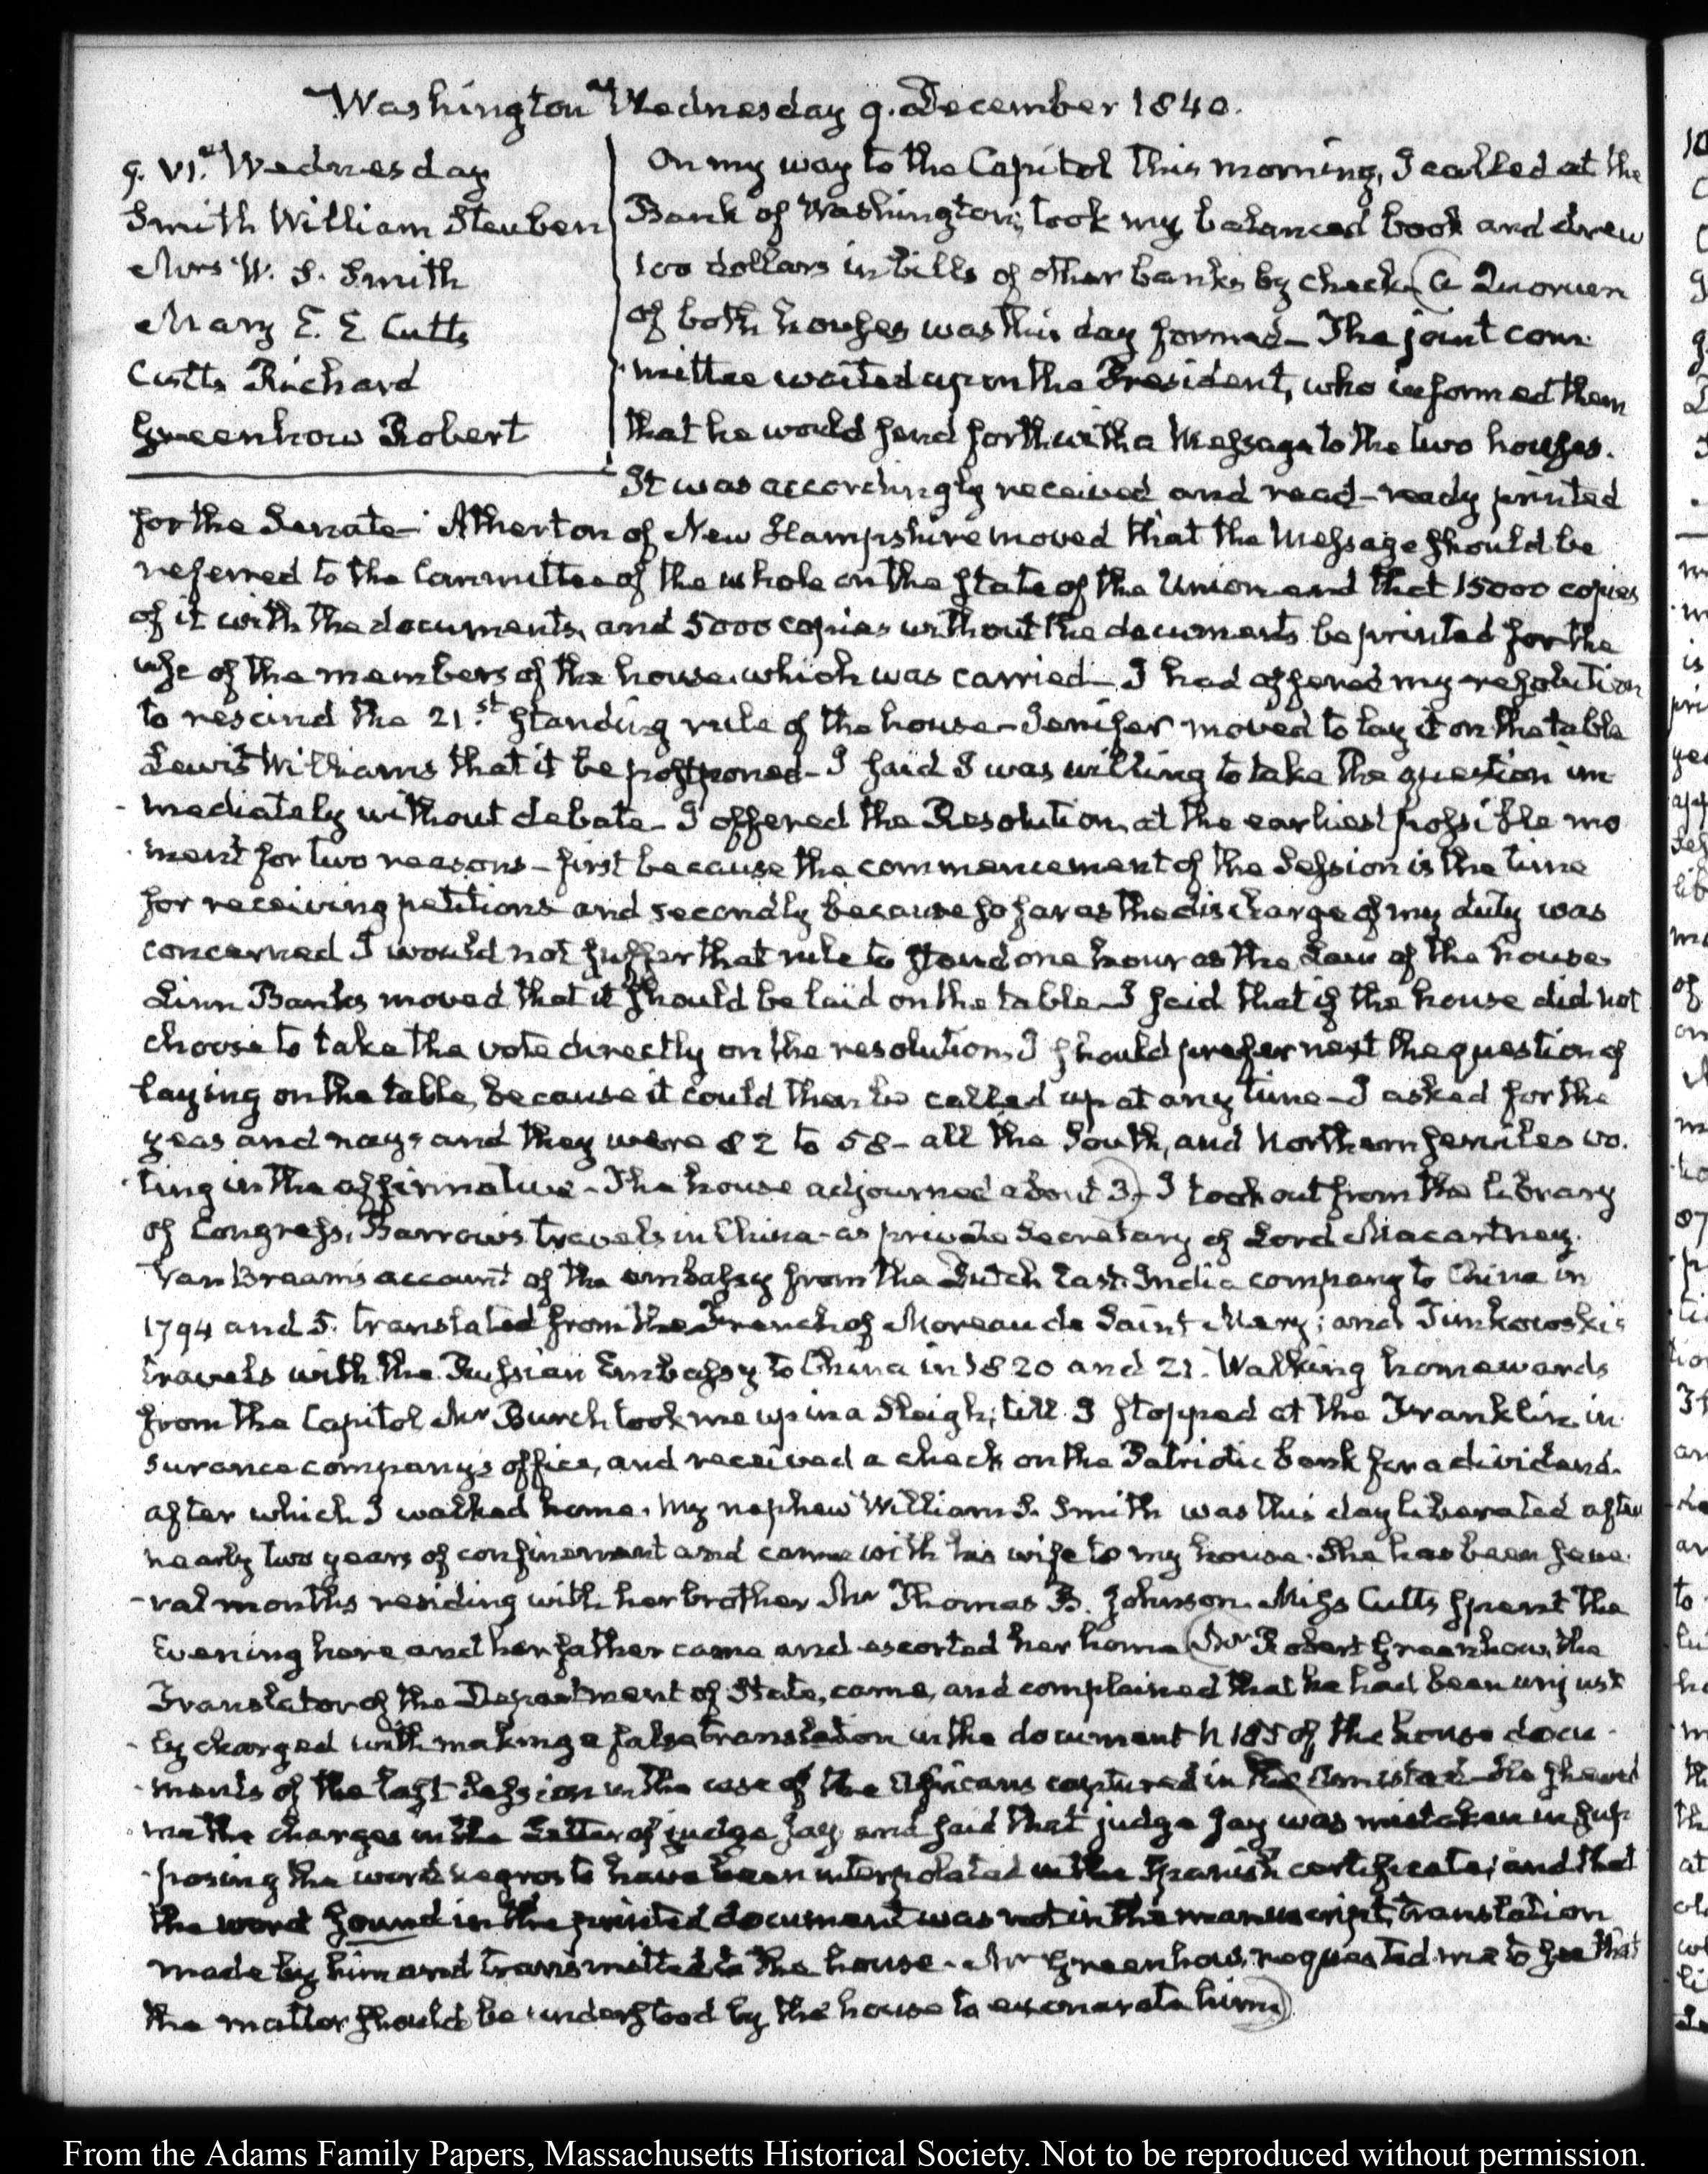 Washington Wednesday 9. December 1840.
9. VI. Wednesday
Smith William Steuben
Mrs W. S. Smith
Mary E. E Cutts
Cutts Richard
Greenhow Robert
On my way to the Capitol this morning, I called at the
Bank of Washington; took my balanced book and drew
100 dollars in bills of other banks by check (a Quorum
of both houses was this day formed— The joint com-
mittee waited upon the President, who informed them
that he would send forthwith a Message to the two houses.
It was accordingly received and read—ready printed
for the Senate— Atherton of New Hampshire moved that the Message should be
referred to the Committee of the whole on the state of the Union and that 15000 copies
of it with the documents, and 5000 copies without the documents be printed for the
use of the members of the house. which was carried— I had offered my resolution
to rescind the 21.st standing rule of the house— Jenifer moved to lay it on the table
Lewis Williams that it be postponed— I said I was willing to take the question im-
mediately without debate— I offered the Resolution, at the earliest possible mo
ment for two reasons— first because the commencement of the Session is the time
for receiving petitions and secondly because so far as the discharge of my duty was
concerned I would not suffer that rule to stand one hour as the Law of the house
Linn Banks moved that it should be laid on the table— I said that if the house did not
choose to take the vote directly on the resolution, I should prefer next the question of
laying on the table, because it could then be called up at any time— I asked for the
yeas and nays and they were 82 to 58— all the South, and Northern serviles vo-
ting in the affirmative— The house adjourned about 3)— I took out from the library
of Congress, Barrow's travels in China— as private Secretary of Lord Macartney.
Van Braam's account of the embassy from the Dutch East India company to China in
1794 and 5. translated from the French of Moreau de Saint Mery; and Timkowski's
travels with the Russian Embassy to China in 1820 and 21. Walking homewards
from the Capitol Mr Burch took me up in a Sleigh; till I stopped at the Franklin in-
surance company's office, and received a check on the Patriotic bank for a dividend.
after which I walked home. My nephew William S. Smith was this day liberated after
nearly two years of confinement and came with his wife to my house. She has been seve-
ral months residing with her brother Mr Thomas B. Johnson. Miss Cutts spent the
Evening here and her father came and escorted her home (Mr Robert Greenhow, the
Translator of the Department of State, came, and complained that he had been unjust
ly charged with making a false translation in the document N 185 of the house docu-
ments of the last Session in the case of the Africans captured in the Amistad— He shewed
me the charges in the Letter of judge Jay and said that judge Jay was mistaken in sup-
posing the word negros to have been interpolated in the Spanish certificate; and that
the word sound in the printed document was not in the manuscript translation
made by him and transmitted to the house. Mr Greenhow requested me to see that
the matter should be understood by the house to exonerate him.)
From the Adams Family Papers, Massachusetts Historical Society. Not to be reproduced without permission.